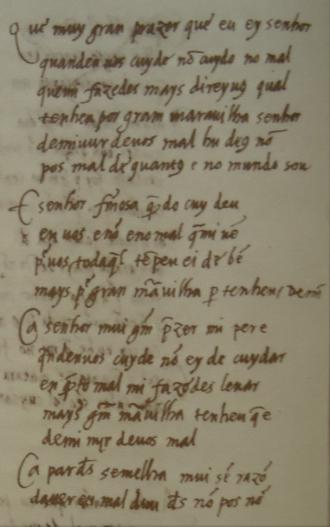 Que muy gran prazer que eu ey senhor
quanden uos cuyde nō cuydo no mal
quemi fazedes mays direyuꝯ qual
tenheu por gram marauilha senhor
demiuijr deuos mal hu deꝯ nō
pos mal de quantꝯ e no mundo son
E senhor fremosa q̄do cuydeu
en uos enō eno mal q̄mi uē
p̱ uos todaq̄l tēpeu ei de bē
mays p̱ gran mā uilha p̱ tenheu
Ca senhor mui gm̄ p̃zer mi per e
q̄ndenuos cuyde nō ey de cuydar
en q̄to mal mi fazedes leuar
mays gm̄ māuilha tenheu q̄ e
demi uijr deuos mal
Ca par ds̄ semelha mui sē razō
dauer eu mal du ds̄ nō pos nō